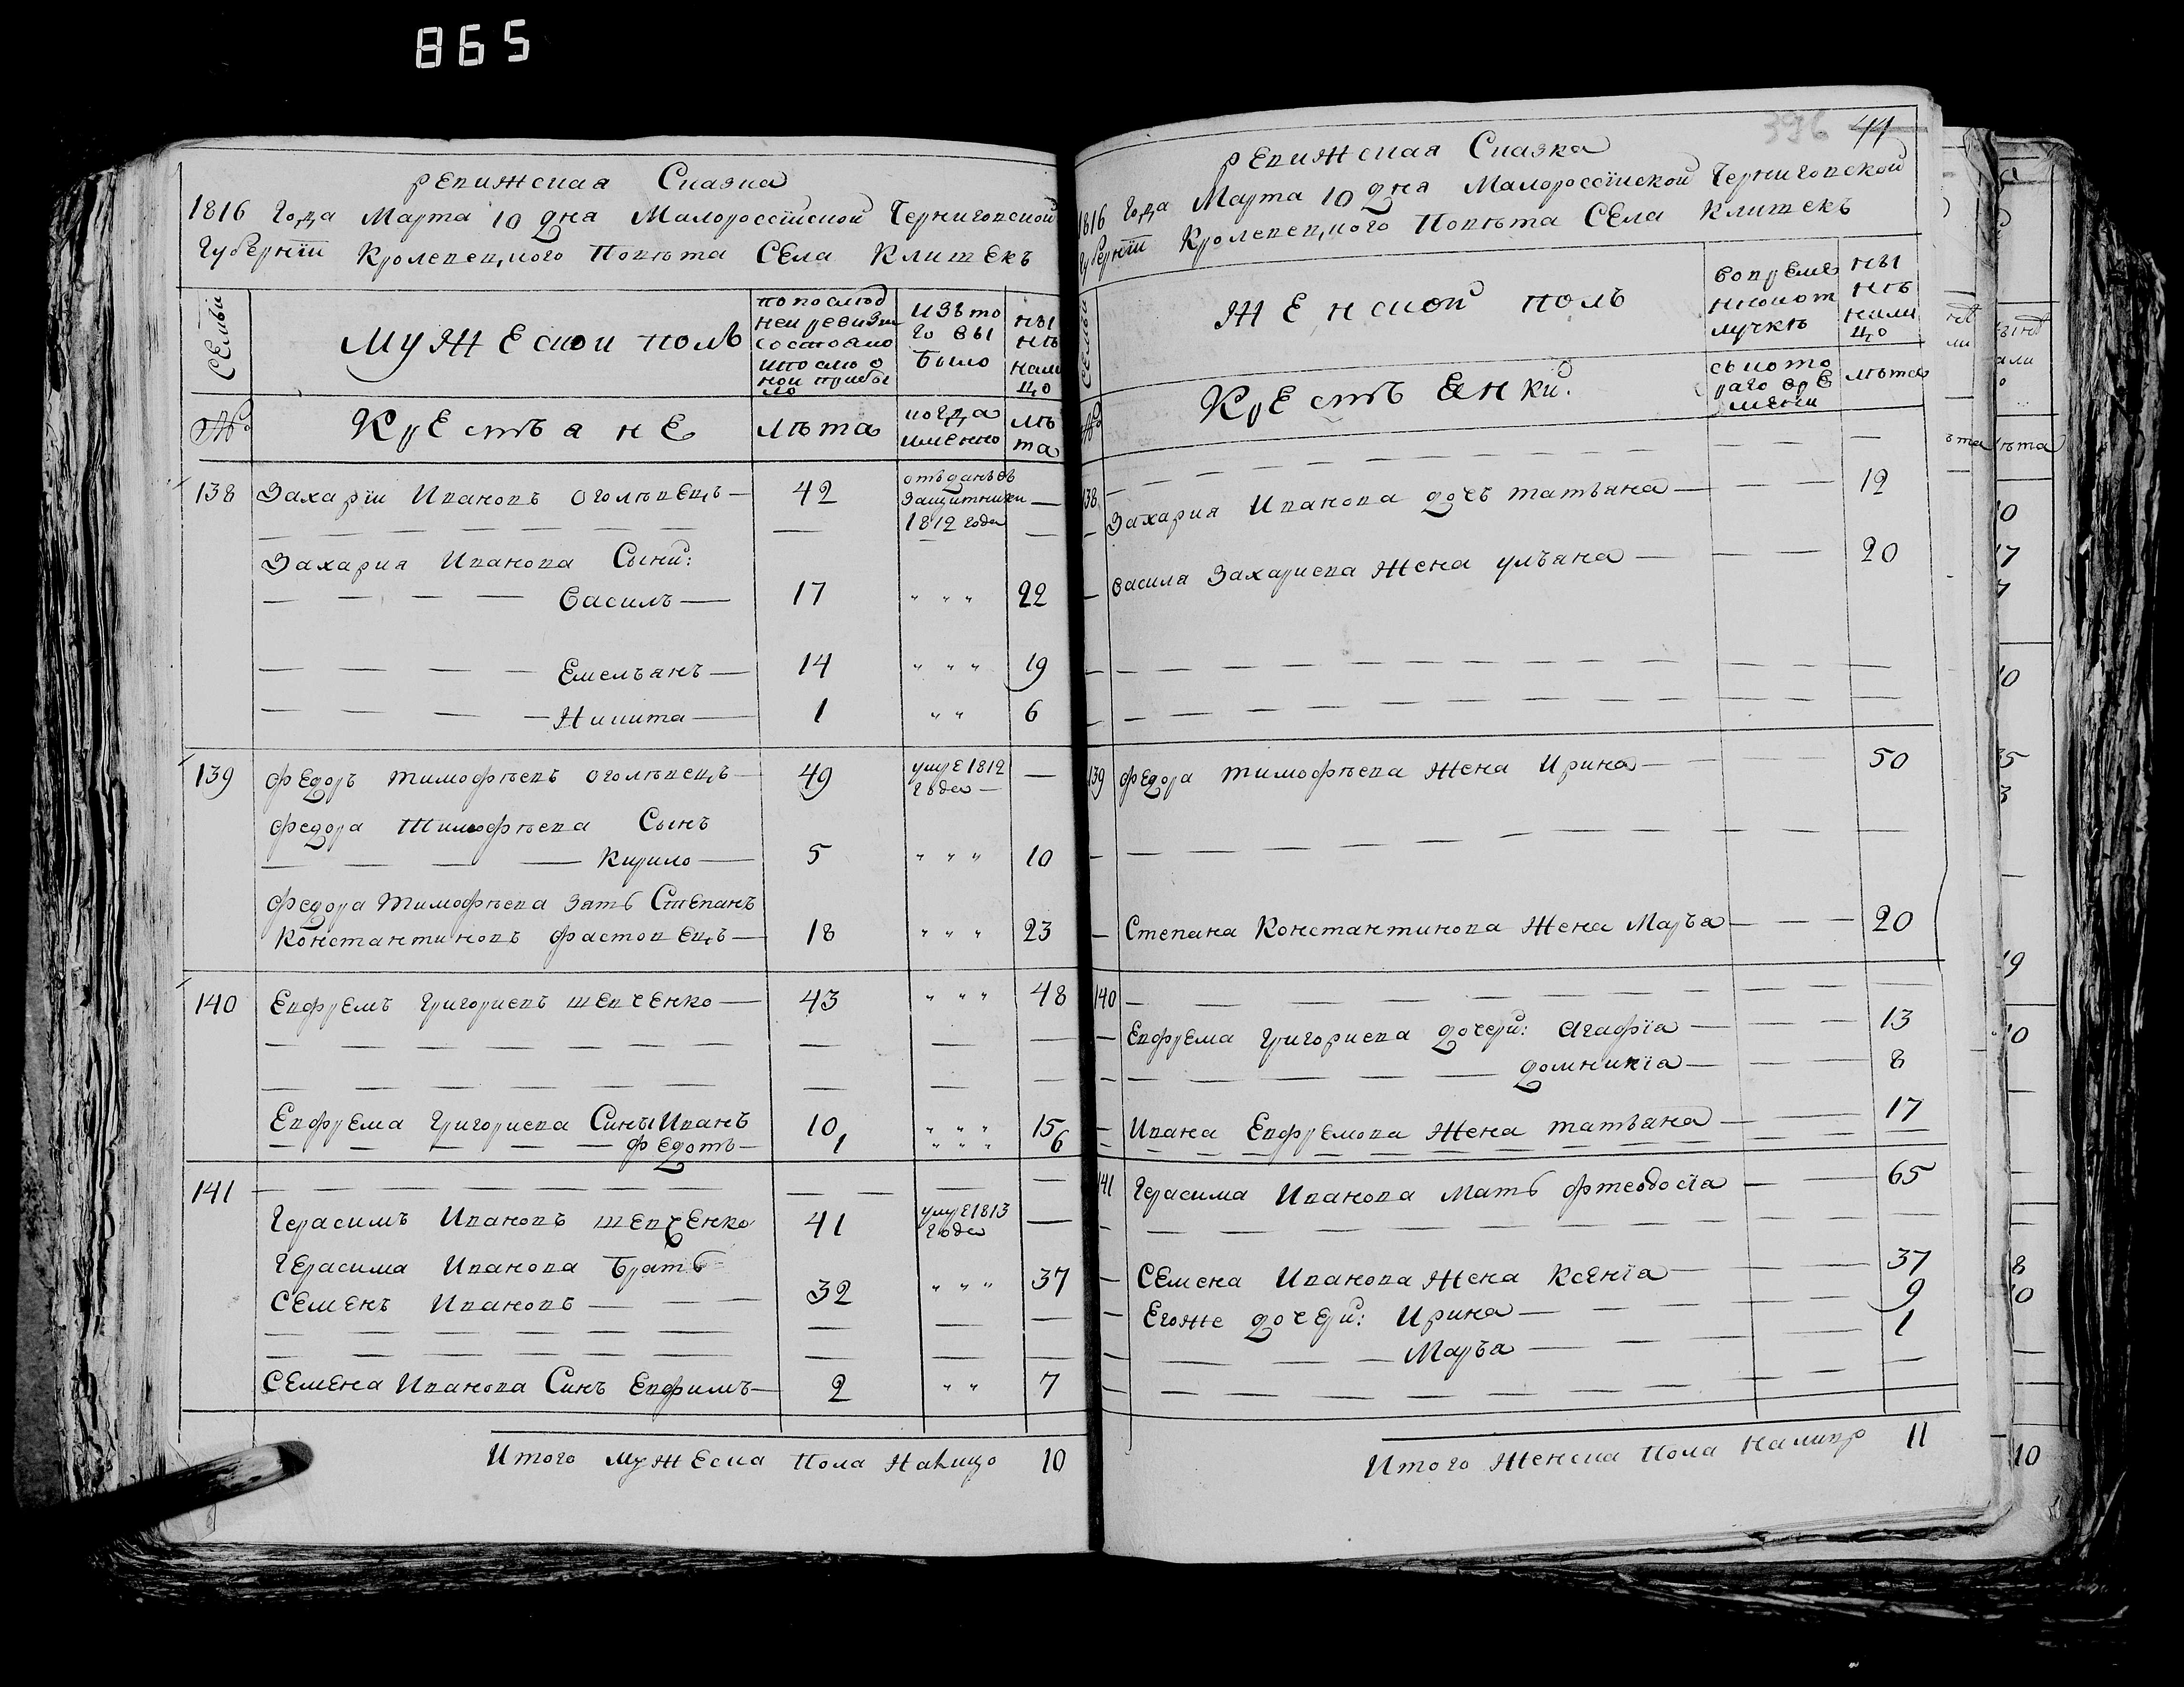 865
ревижская Сказка
1816 Года Марта 10 дня Малороссійской Черниговской
Губерніи Кролевецкого Повѣта Села Клишекъ
Семьи
мужеской полъ
по послѣд
ней ревизіи
состояло
и после о
ной прибы
ло
изъ то
го вы
было
ны
нѣ
нали
цо
№
Крестьяне
лѣта
когда
именно
лѣ
та
138 Захарій Ивановъ Оголѣвецъ 42 отъданъ въ
защитники
1812 года
Захария Иванова Сыни:
Василъ 17 " " " 22
Емелъянъ 14 " " " 19
Никита 1 " " 6
139 федоръ тимофѣевъ оголѣвецъ 49 умре 1812
года
федора тимофѣева Сынъ
Кирило 5 " " " 10
федора тимофѣева зять Степанъ
Константиновъ фастовецъ 18 " " " 23
140 Евфремъ Григориевъ шевченко 43 " " " 48
Евфрема Григориева Сины Иванъ 10 " " " 15
федотъ 1 " " " 6
141
Герасимъ Ивановъ шевченко 41 умре 1813
года
Герасима Иванова братъ
Семенъ Ивановъ 32 " " " 37
Семена Иванова Синъ Евфимъ 2 " " 7
Итого мужеска пола налицо 10
396 44
ревижская Сказка
1816 Года Марта 10 дня Малороссійской Черниговской
Губерніи Кролевецкого Повѣта Села Клишекъ
Семьи
женской полъ
во време
нной от
лучкѣ
ны
нѣ
нали
цо
№
Крестьянки
съ кото
раго вре
мени
лѣта
138
Захария Иванова дочъ татъяна 12
Васила Захариева жена улъяна 20
139 федора тимофѣева жена Ирина 50
Степана Константинова жена Маръа 20
140
Евфрема Григориева дочери: Агафіа 13
домникіа 8
Ивана Евфремова жена татъана 17
141 Герасима Иванова мать фтеодосіа 65
Семена Иванова жена Ксеніа 37
Егоже дочери: Ирина 9
Маръа 1
Итого женска пола налицо 11